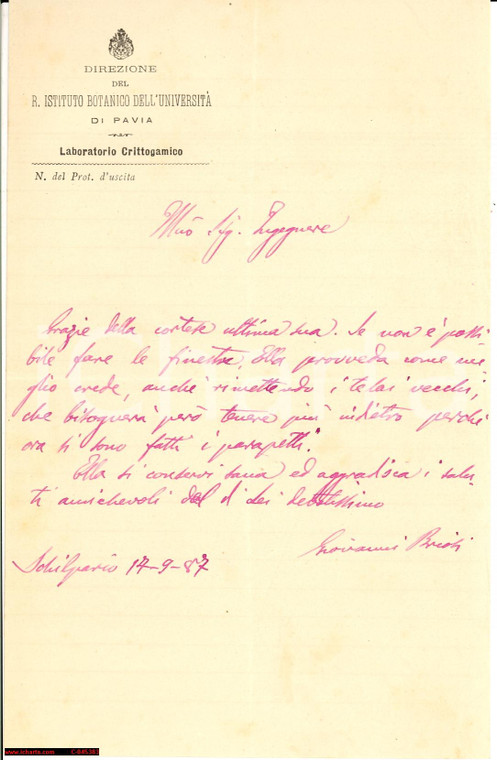 DIREZIONE
DEL
R. ISTITUTO BOTANICO DELL'UNIVERSITÀ
DI PAVIA
Laboratorio Crittogamico
N. del Prot. d'uscita
Illmo Sig. Ingegnere
Grazie della cortese ultima sua. Se non è possi
bile fare le finestre, Ella provveda come me
glio crede, anche rimettendo i telai vecchi,
che bisognerà però tenere più indietro perchè
ora si sono fatti i parapetti.
Ella si conservi sana ed aggradisca i salu
ti amichevoli del di Lei
Giovanni Briosi
Schilpario 17-9-87
www.icharta.com C-045381